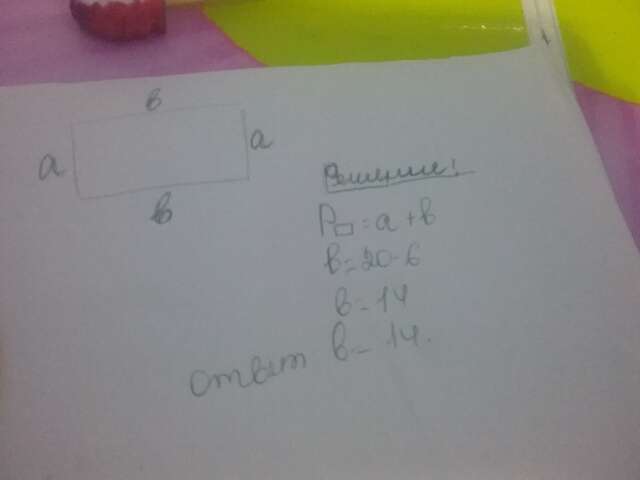 в
а
а
в
Решение:
P□ = а + в
в = 20 - 6
в = 14
ответ в = 14.